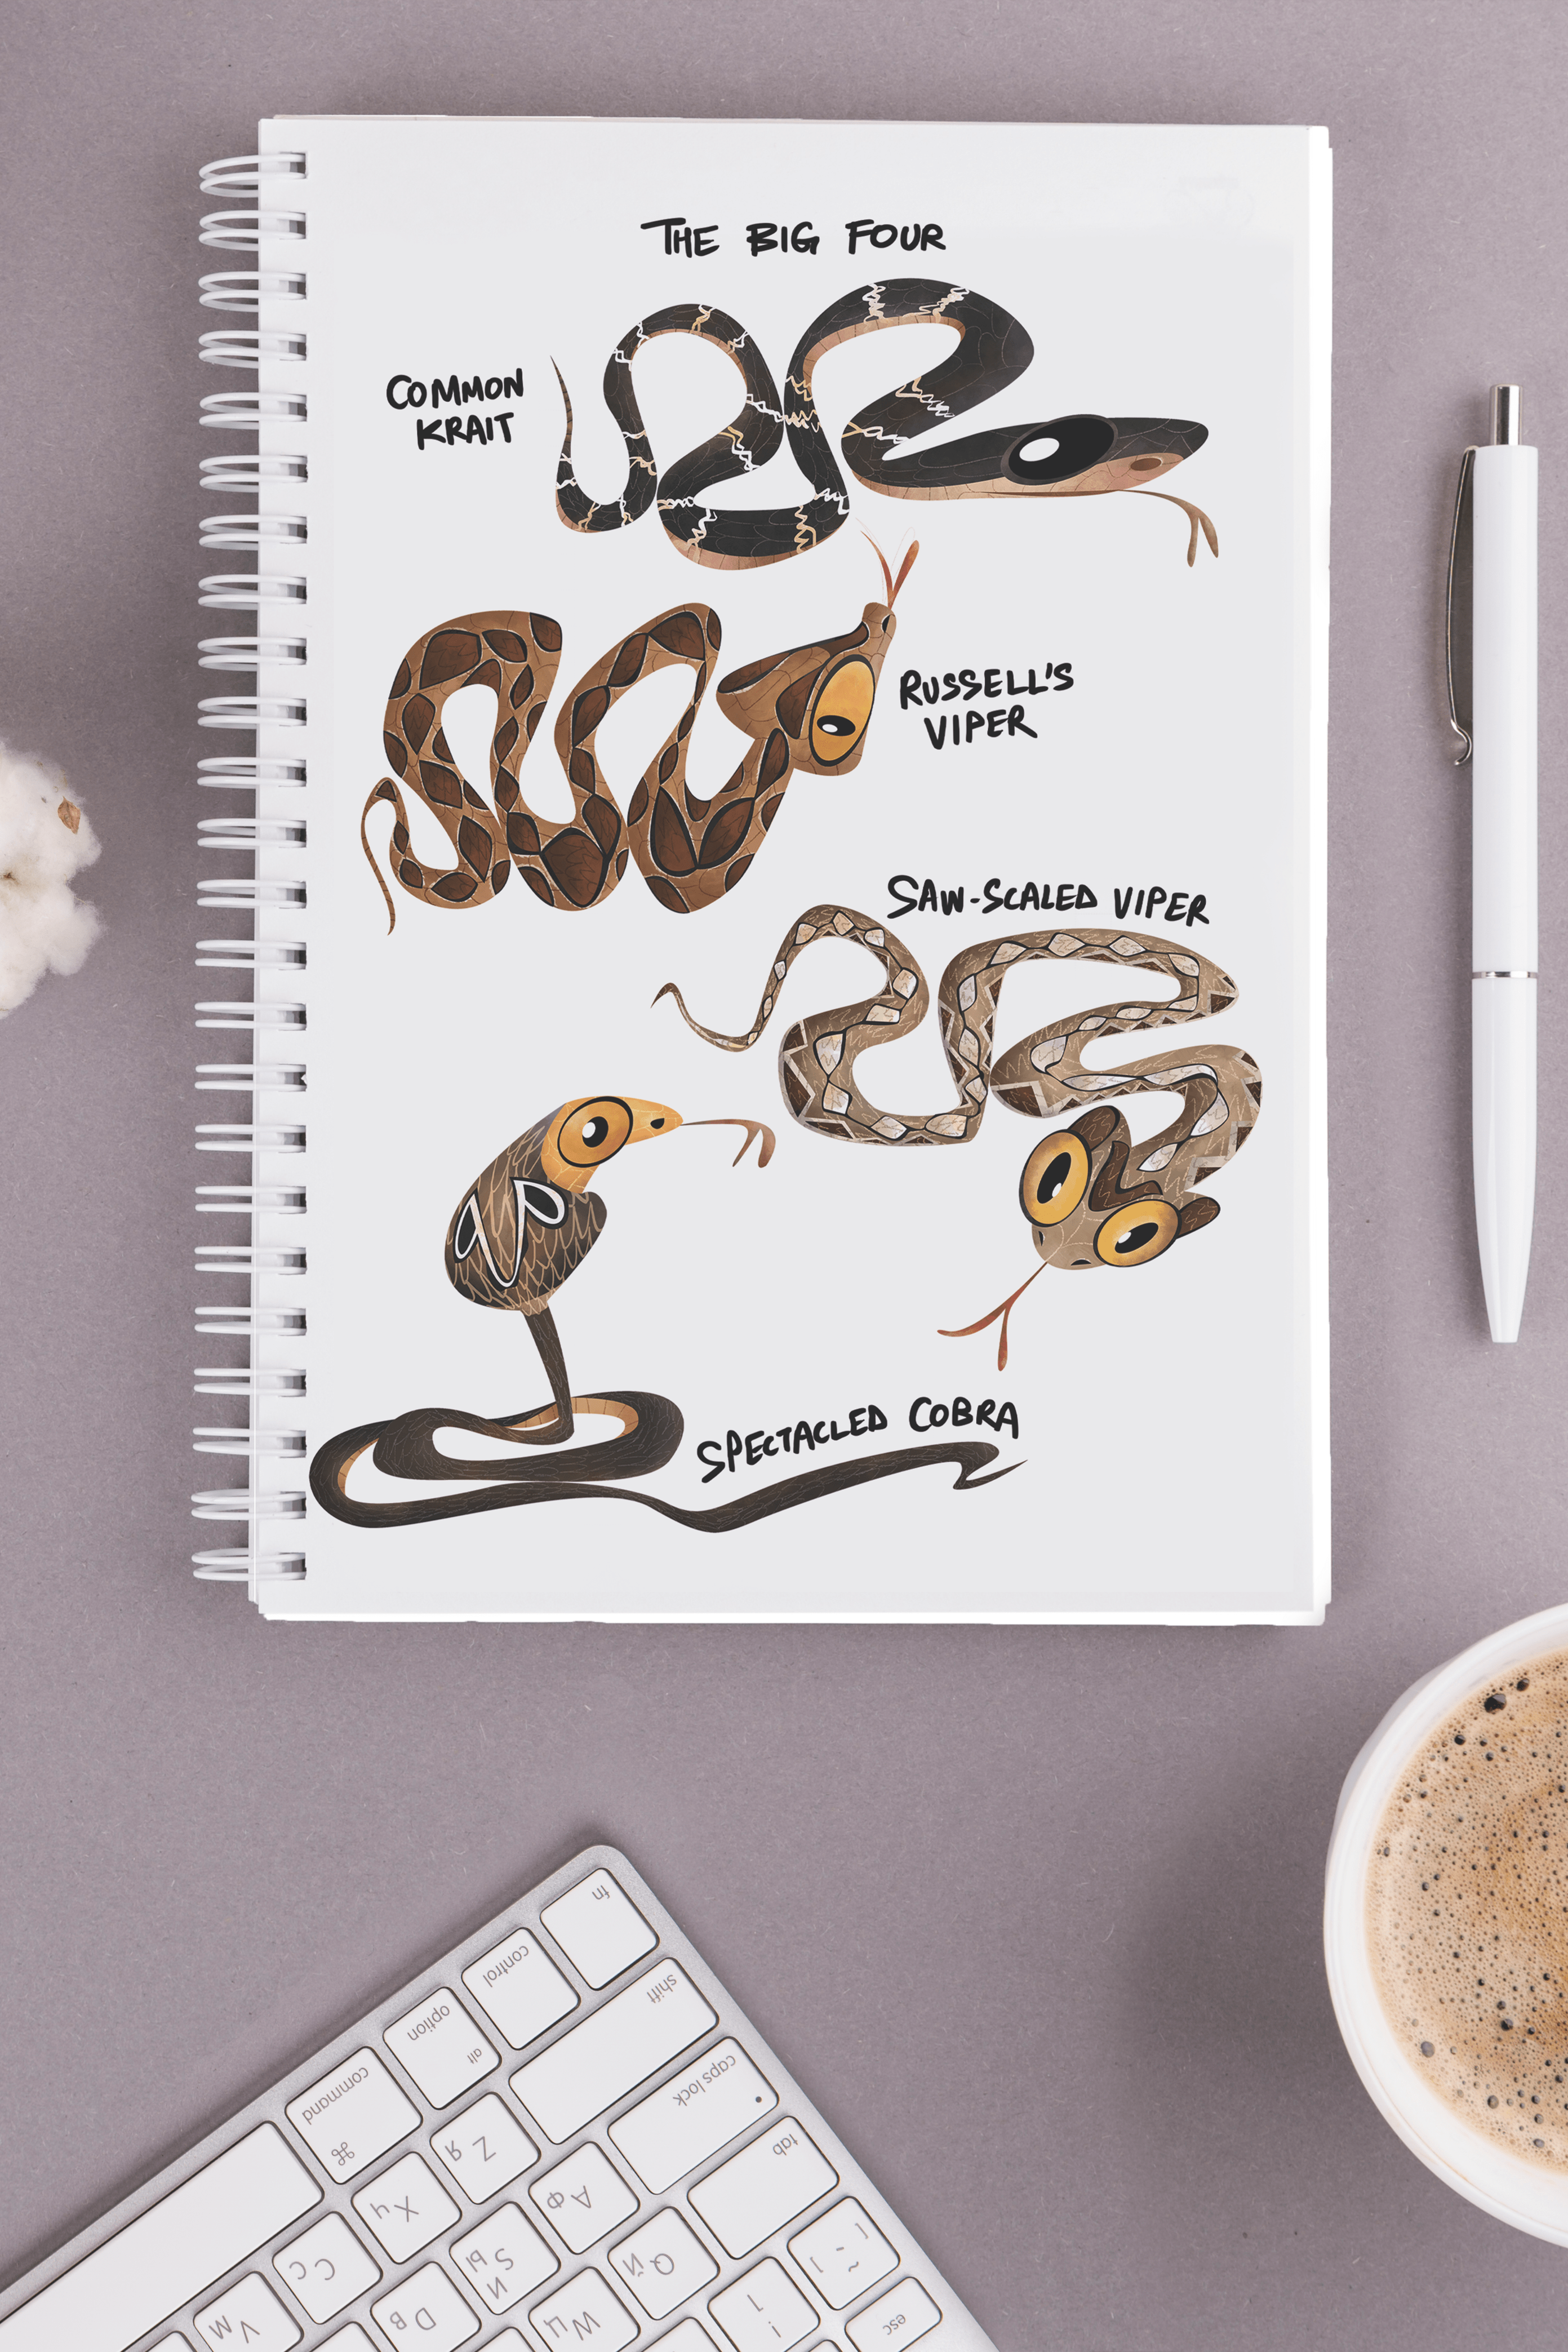 THE BIG FOUR
COMMON
KRAIT
RUSSELL'S
VIPER
SAW-SCALED VIPER
SPECTACLED COBRA
fn
control
option
alt
command
⌘
shift
caps lock
tab
esc
Z Я
X Ч
C С
V М
A Ф
S Ы
D В
Q Й
W Ц